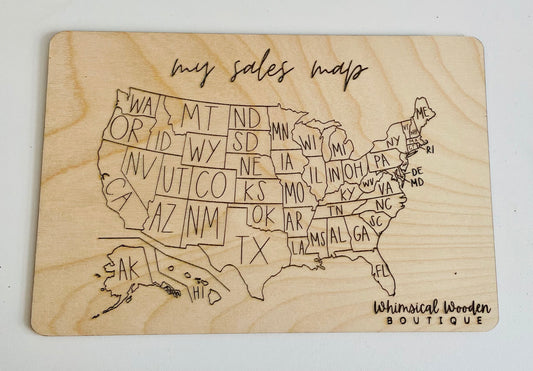 my sales map
WA MT ND MN ME
OR ID WY SD WI MI NY RI
NV UT CO NE IA IL IN OH PA DE
CA KS MO KY WV VA MD
AZ NM OK AR TN NC SC
TX LA MS AL GA
AK HI FL
Whimsical Wooden
BOUTIQUE